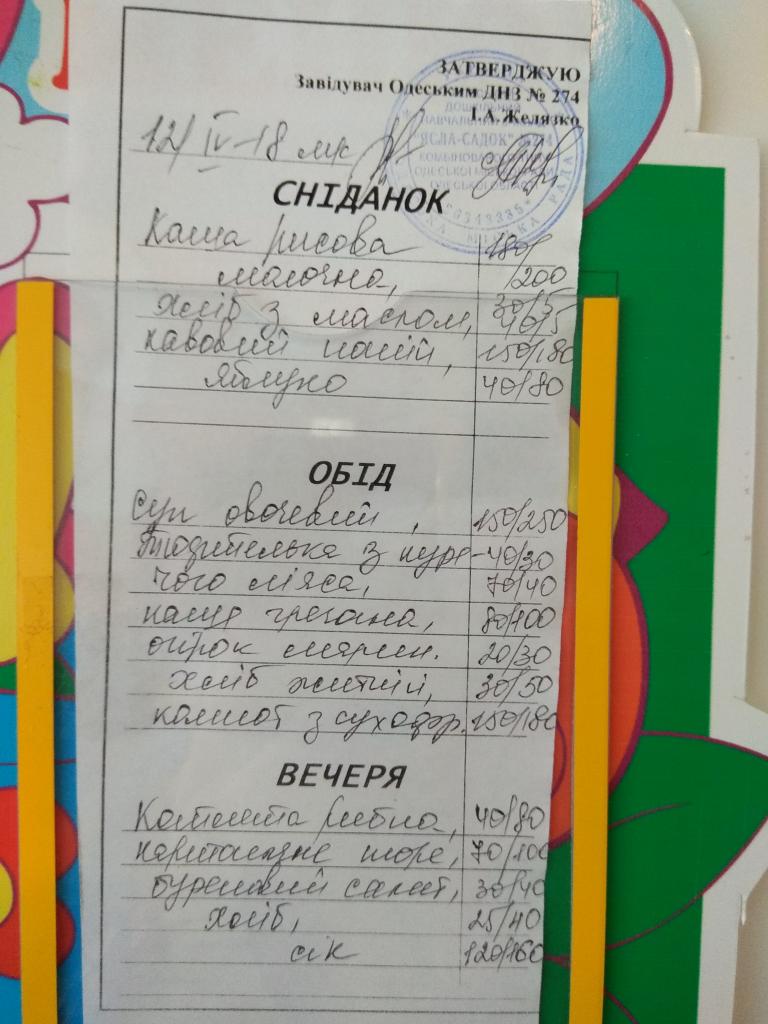 ЗАТВЕРДЖУЮ
Завідувач Одеським ДНЗ № 274
І.А.Желязко
12/IV-18
"ЯСЛА-САДОК" №274
СНІДАНОК
Каша рисова 180/
молочна, /200
хліб з маслом, 30/5 40/5
кавовий напій, 150/180
яблуко 40/80
ОБІД
Суп овочевий, 150/250
з куре- 40/30
чого м'яса, 70/40
каша гречана, 80/100
огірок марин. 20/30
хліб житній, 30/50
компот з сухофр. 150/180
ВЕЧЕРЯ
Котлета рибна, 40/80
картопляне пюре, 70/100
буряковий салат, 30/40
хліб, 25/40
сік 120/160